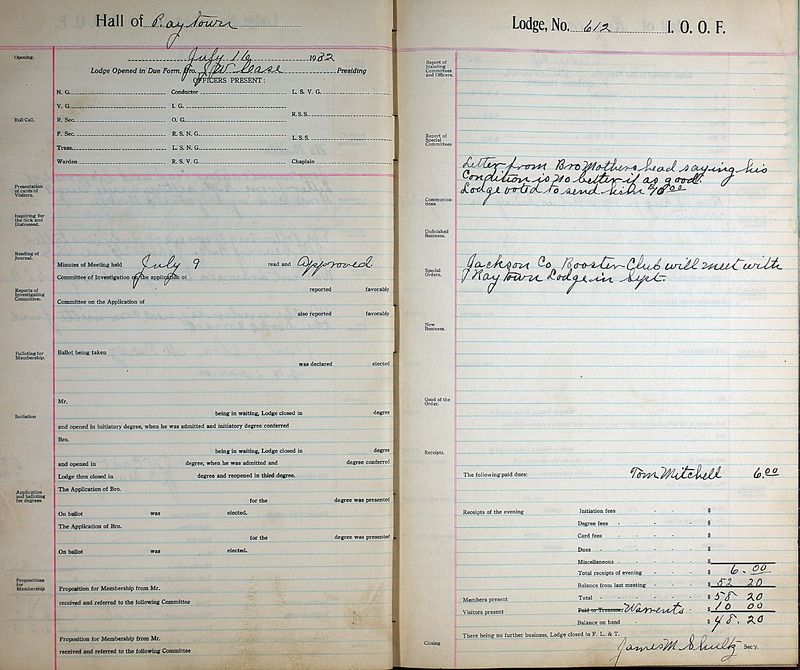 Hall of Raytown
July 16 1932
Opening.
Lodge Opened in Due Form, Bro. J W Cease Presiding
OFFICERS PRESENT:
N. G. Conductor L. S. V. G.
V. G. I. G. R.S.S.
Roll Call.
R. Sec. O. G.
F. Sec. R. S. N. G. L. S. S.
Treas. L. S. N. G.
Warden R. S. V. G. Chaplain
Presentation of cards of Visitors.
Inquiring for the Sick and Distressed.
Reading of Journal.
Minutes of Meeting held July 9 read and Approved
Committee of Investigation on the application of
reported favorably
Reports of Investigating Committee.
Committee on the Application of
also reported favorably
Balloting for Membership.
Ballot being taken
was declared elected
Mr.
Initiation
being in waiting, Lodge closed in degree
and opened in initiatory degree, when he was admitted and initiatory degree conferred
Bro.
being in waiting, Lodge closed in degree
and opened in degree, when he was admitted and degree conferred
Lodge then closed in degree and reopened in third degree.
Application and balloting for degrees
The Application of Bro.
for the degree was presented
On ballot was elected.
The Application of Bro.
for the degree was presented
On ballot was elected.
Propositions for Membership
Proposition for Membership from Mr.
received and referred to the following Committee
Proposition for Membership from Mr.
received and referred to the following Committee
Lodge, No. 612 I. O. O. F.
Report of Standing Committees and Officers.
Report of Special Committees
Letter from Bro Mothershead saying his
Condition is no better if as good.
Lodge voted to send him
Communications.
Unfinished Business.
Special Orders.
Jackson Co. Booster Club will meet with
Raytown Lodge in Sept.
New Business.
Good of the Order.
Receipts.
The following paid dues: Tom Mitchell 6.00
Receipts of the evening Initiation fees $
Degree fees $
Card fees $
Dues $
Miscellaneous $
Total receipts of evening $ 6.00
Balance from last meeting $ 52 20
Members present Total $ 58 20
Visitors present Paid to Treasurer Warrents $ 10 00
Balance on hand $ 48.20
There being no further business, Lodge closed in F. L. & T.
Closing James M Shultz Sec'y.